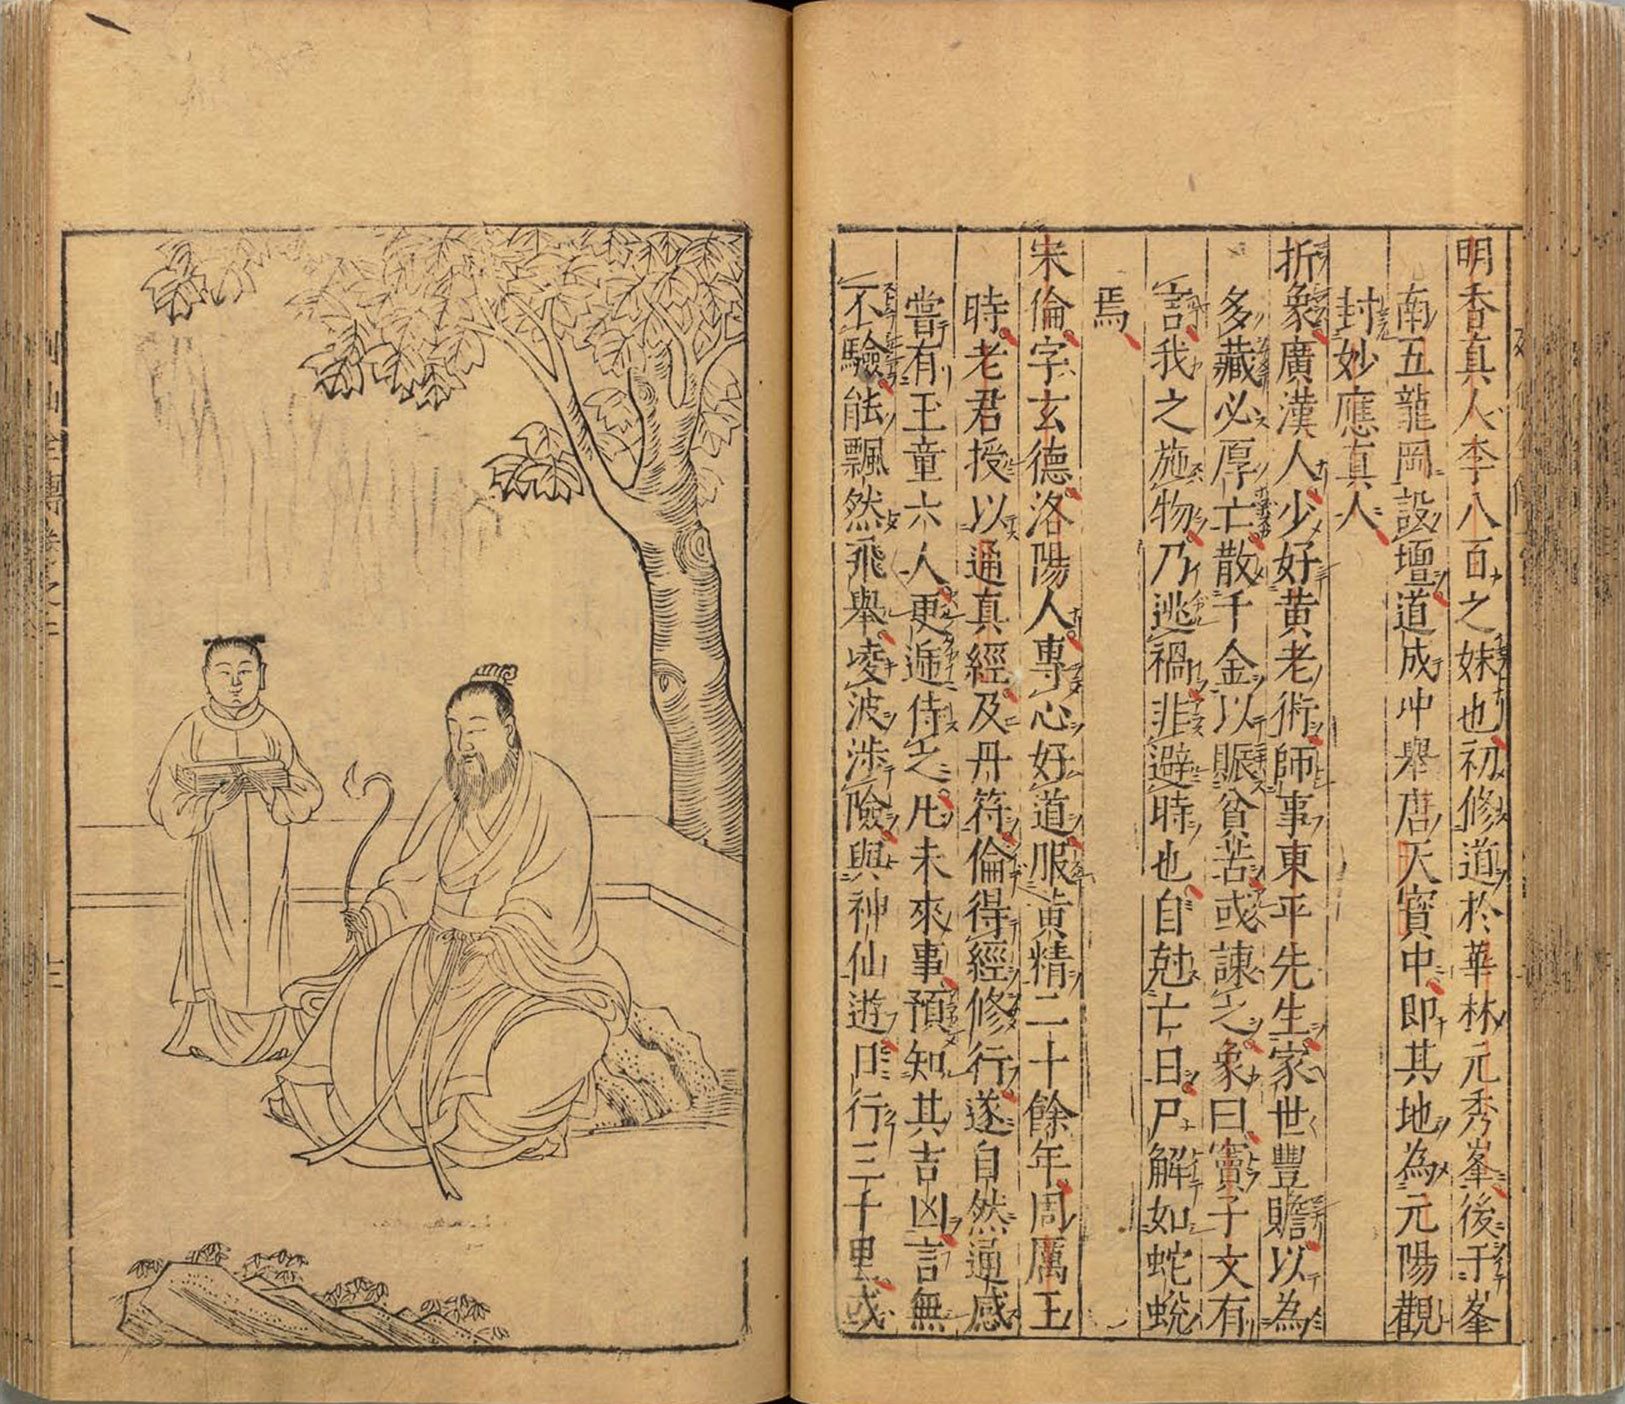 明香真人李八百之妹也初修道於華林元秀峯後于峯
南五龍岡設壇道成冲舉唐天寶中即其地為元陽觀
封妙應真人
折象廣漢人少好黄老術師事東平先生家世豐贍以為
多藏必厚亡散千金以賑貧苦或諫之象曰竇子文有
言我之施物乃逃禍非避時也自尅亡日尸解如蛇蛻
焉
宋倫字玄德洛陽人專心好道服黄精二十餘年周厲王
時老君授以通真經及丹符倫得經修行遂自然通感
嘗有玉童六人更逓侍之凡未來事預知其吉凶言無
不驗能飄然飛舉凌波涉險與神仙遊日行三千里或